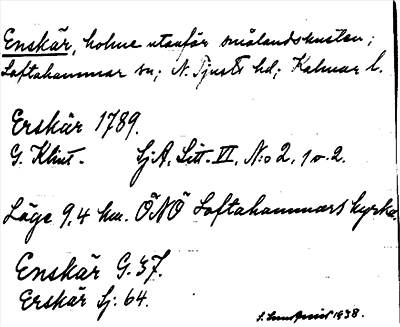 Enskär, holme utanför smålandskusten;
Loftahammar sn; N. Tjusts hd; Kalmar l.
Erskär 1789.
G. Klint. SjA, Litt. VI, N:o 2, 1 o. 2.
Läge 9,4 km. ÖNÖ Loftahammars kyrka.
Enskär G. 37.
Erskär Sj. 64.
1938.